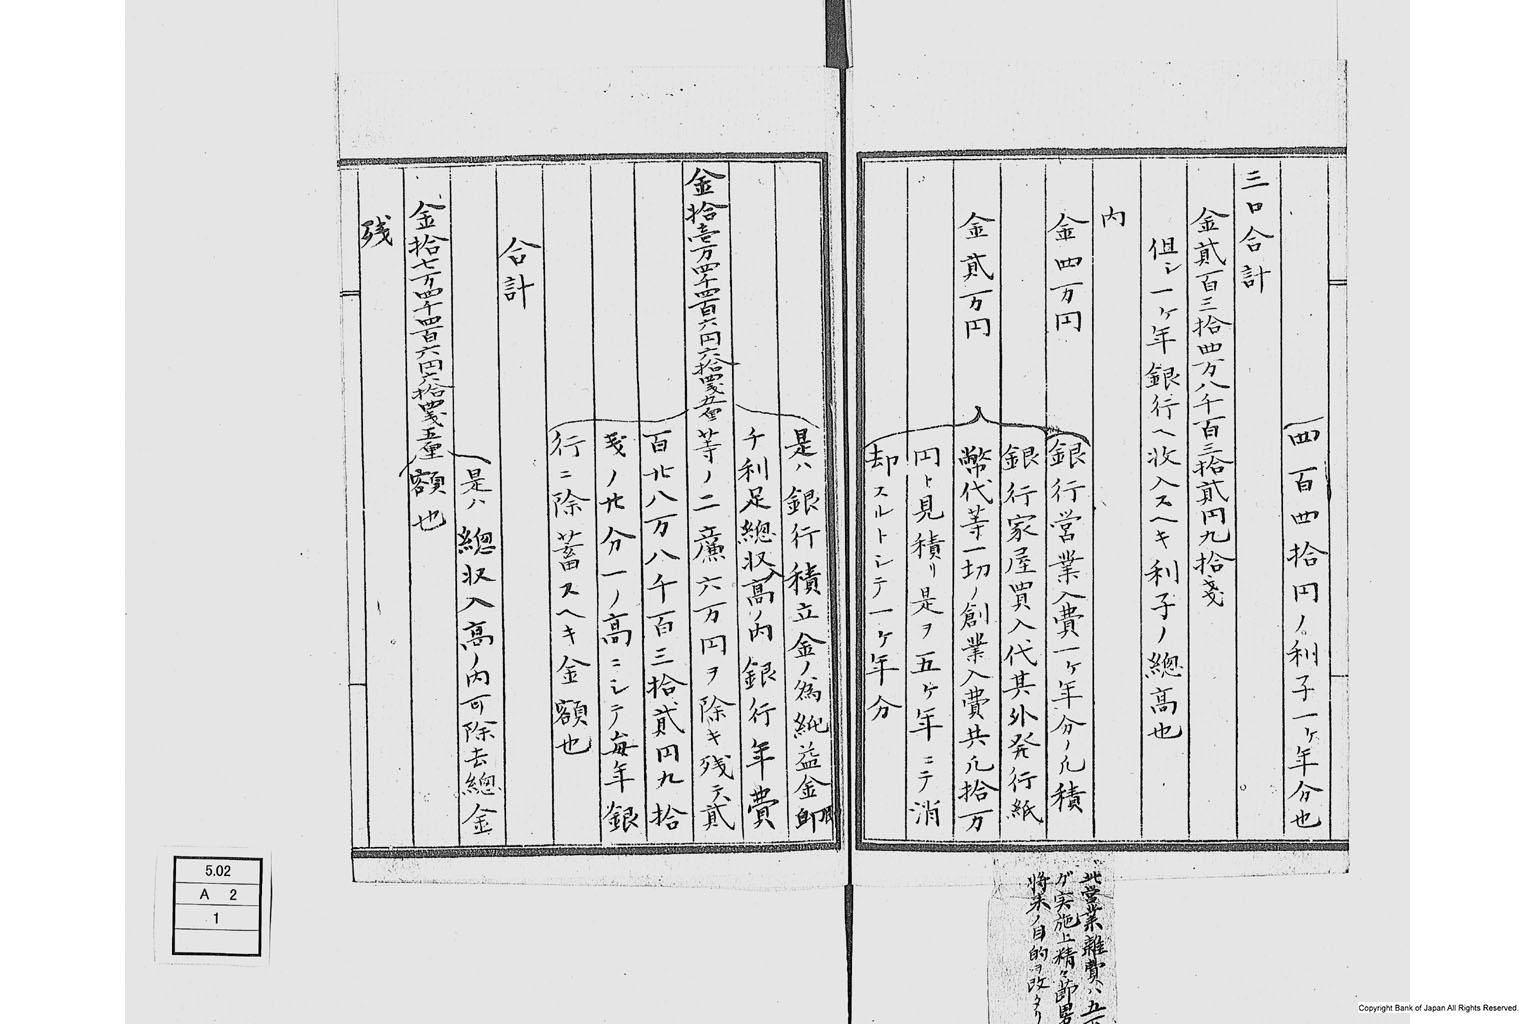 四百四拾円ノ利子一ヶ年分也
三口合計
金貳百三拾四万八千百三拾貳円九拾戔
但シ一ヶ年銀行ヘ收入スヘキ利子ノ總高也
内
金四万円
銀行営業入費一ヶ年分ノ凡積
金貳万円
銀行家屋買入代其外発行紙
幣代等一切ノ創業入費共凡拾万
円ト見積リ是ヲ五ヶ年ニテ消
却スルトシテ一ヶ年分
此営業雜費ハ五
ゲ実施上精々節
將来ノ目的ヲ改タリ
金拾壱万四千四百六円六拾四戔五厘
是ハ銀行積立金ノ為純益金即
チ利足總収入高ノ内銀行年費
等ノ二廉六万円ヲ除キ残テ貳
百廿八万八千百三拾貳円九拾
戔ノ廿分一ノ高ニシテ毎年銀
行ニ除蓄スヘキ金額也
合計
金拾七万四千四百六円六拾四戔五厘
是ハ總収入高ノ内可除去總金
額也
残
5.02
A 2
1
Copyright Bank of Japan All Rights Reserved.